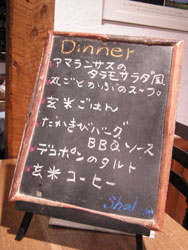 Dinner
アマランサスの
タラモサラダ風
丸ごとかぶのスープ。
玄米ごはん
たかきびバーグ
BBQソース
デコポンのタルト
玄米コーヒー